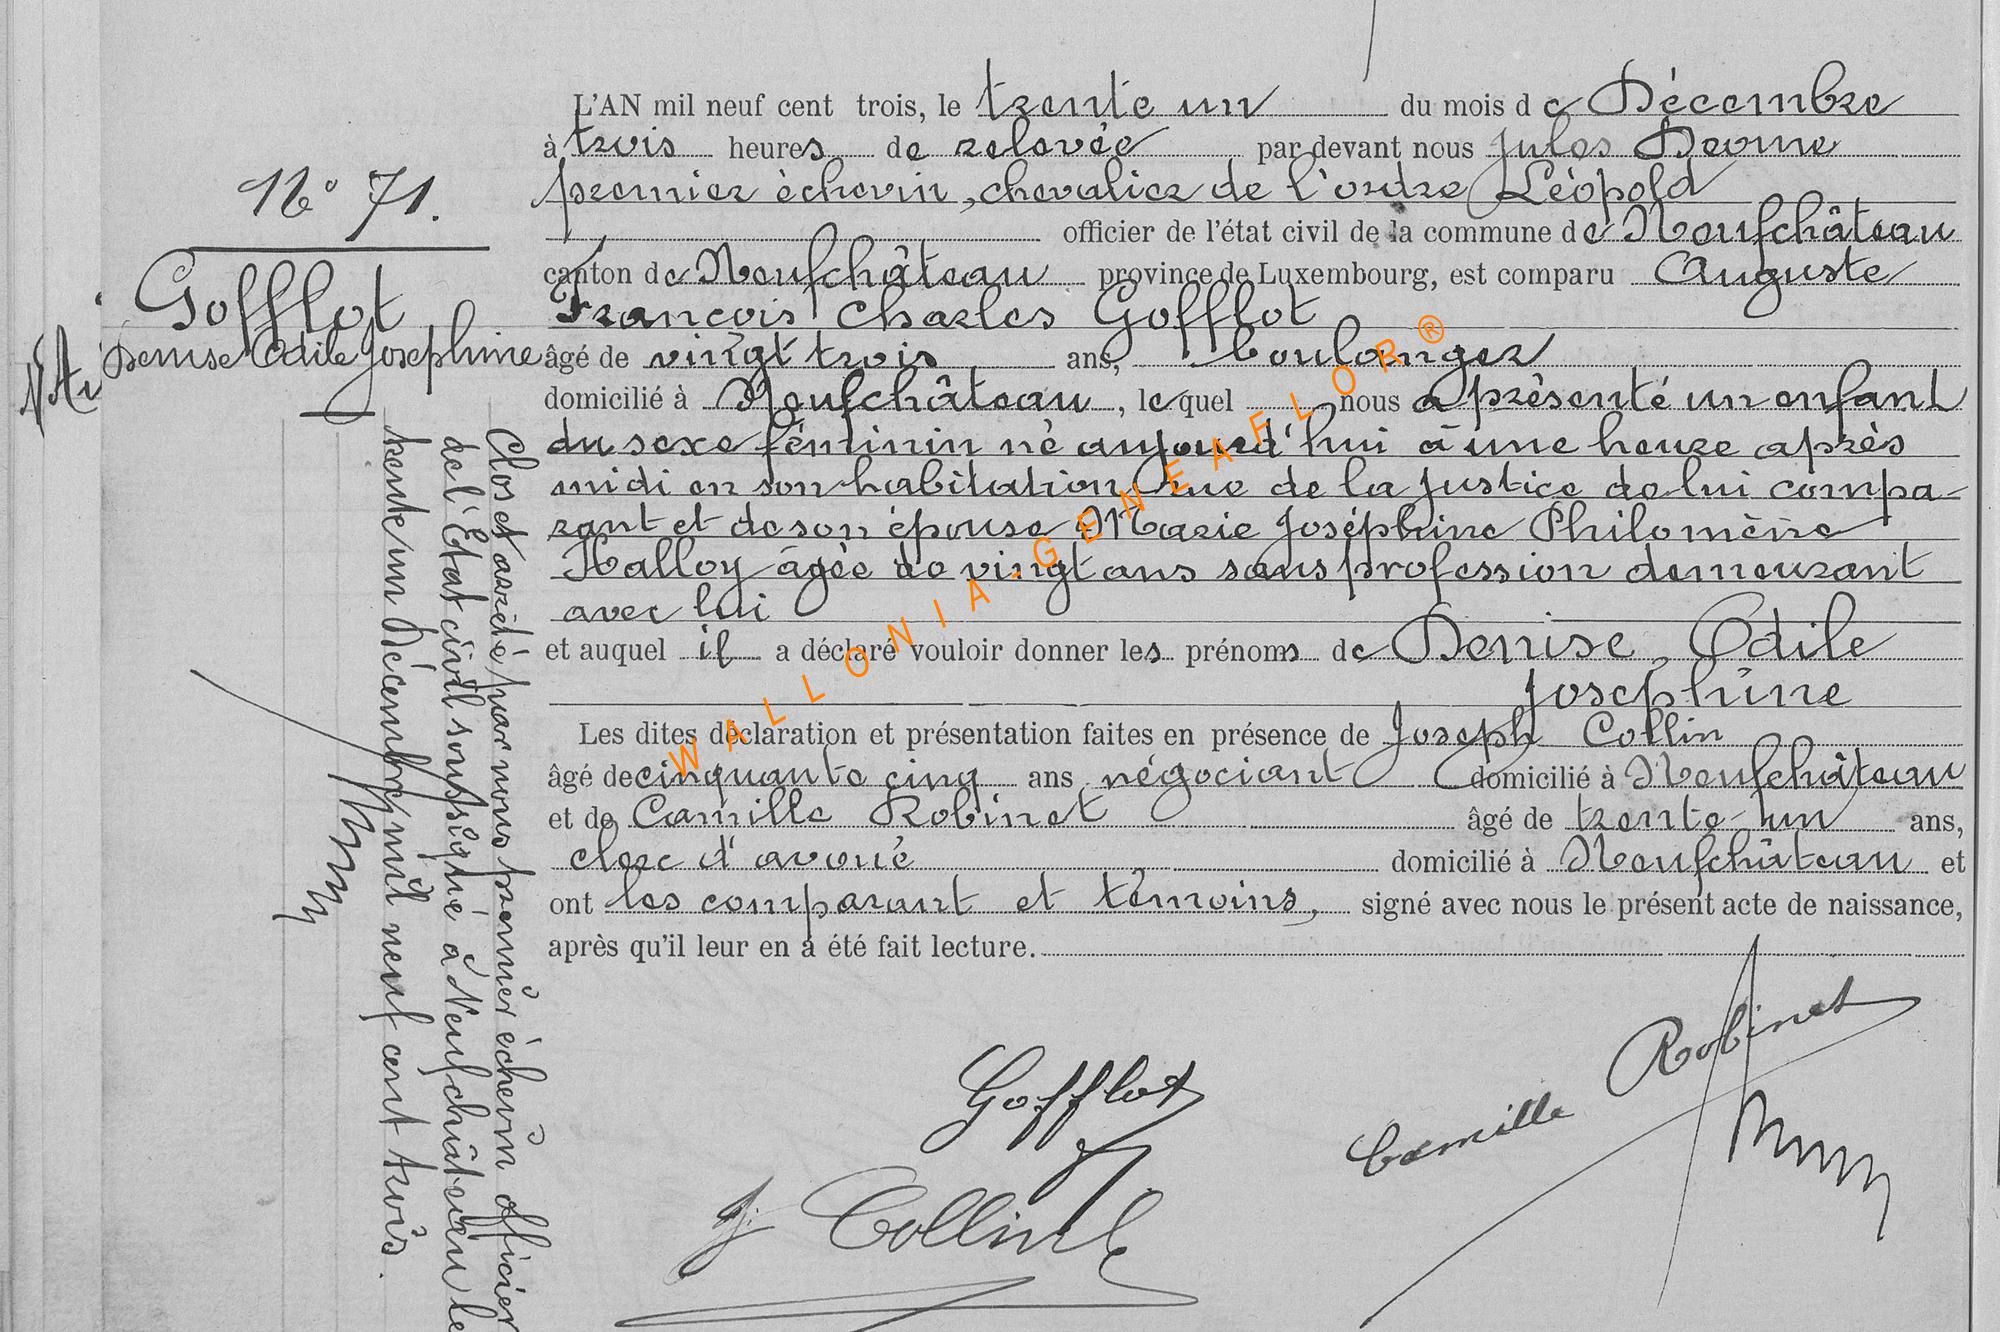 L'AN mil neuf cent trois, le trente un du mois de Décembre
à trois heures de relevée par devant nous Jules
premier échevin, chevalier de l'ordre Léopold
officier de l'état civil de la commune de Neufchâteau
canton de Neufchâteau province de Luxembourg, est comparu Auguste
François Charles Gofflot
âgé de vingt trois ans, boulanger
domicilié à Neufchâteau, lequel nous a présenté un enfant
du sexe féminin né aujourd'hui à une heure après
midi en son habitation Rue de la Justice de lui compa-
rant et de son épouse Marie Joséphine Philomène
Halloy âgée de vingt ans sans profession demeurant
avec lui
et auquel il a déclaré vouloir donner les prénoms de Denise, Odile
Joséphine
Les dites déclaration et présentation faites en présence de Joseph Collin
âgé de cinquante cinq ans négociant domicilié à Neufchâteau
et de Camille Robinet âgé de trente-un ans,
clerc d'avoué domicilié à Neufchâteau et
ont les comparant et témoins, signé avec nous le présent acte de naissance,
après qu'il leur en a été fait lecture.
N° 71.
Gofflot
Denise Odile Josephine
Clos et arrêté par nous premier échevin officier
de l'Etat civil soussigné à Neufchâteau le
trente un Décembre mil neuf cent trois.
Gofflot
Camille Robinet
J. Collin
WALLONIA-GENEAFLOR®